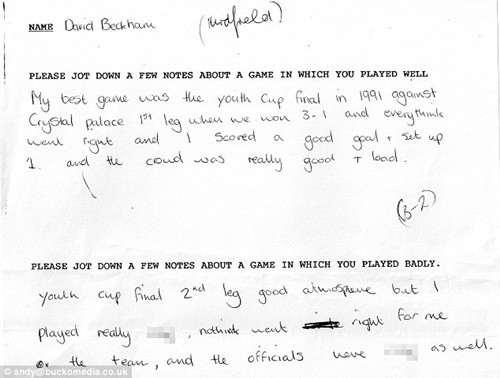 NAME David Beckham (Midfield?)
PLEASE JOT DOWN A FEW NOTES ABOUT A GAME IN WHICH YOU PLAYED WELL
My best game was the youth Cup final in 1991 against
Crystal palace 1st leg when we won 3-1 and everythink
went right and I scored a good goal + set up
1. and the croud was really good + load.
(3-2)
PLEASE JOT DOWN A FEW NOTES ABOUT A GAME IN WHICH YOU PLAYED BADLY.
youth cup final 2nd leg good atmosphere but I
played really , nothink went right for me
or the team, and the officials were as well.
© andy@buckomedia.co.uk